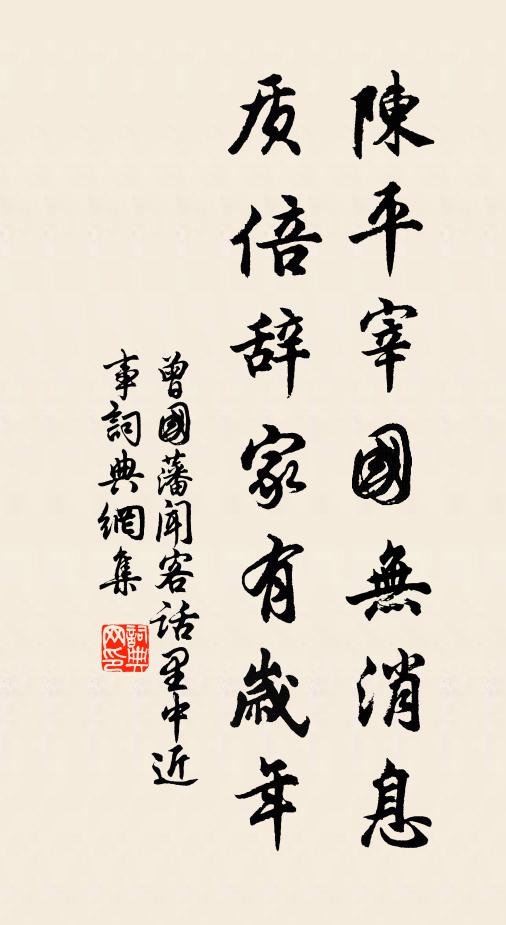 陳平宰國無消息
质倍辞家有歲年
曾國藩闻客话里中近
事詞典網集
詞典
网印